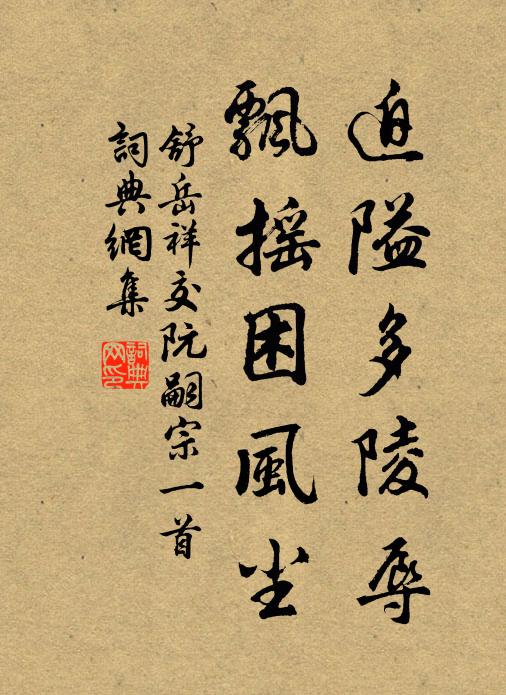 迫隘多陵辱
飄搖困風尘
舒岳祥交阮嗣宗一首
詞典網集
詞典網印